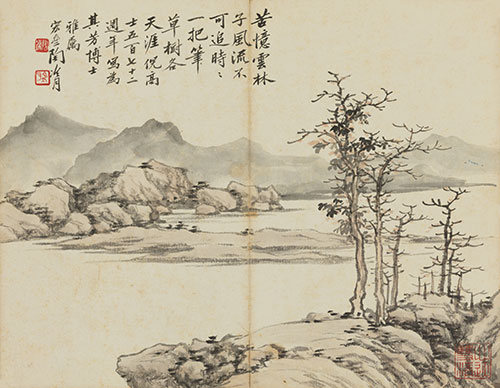 苦憶雲林
子風流不
可追時〻
一把筆
草樹各
天涯倪高
士五百七十二
週年寫為
其芳博士
雅屬
宏齋陶冷月